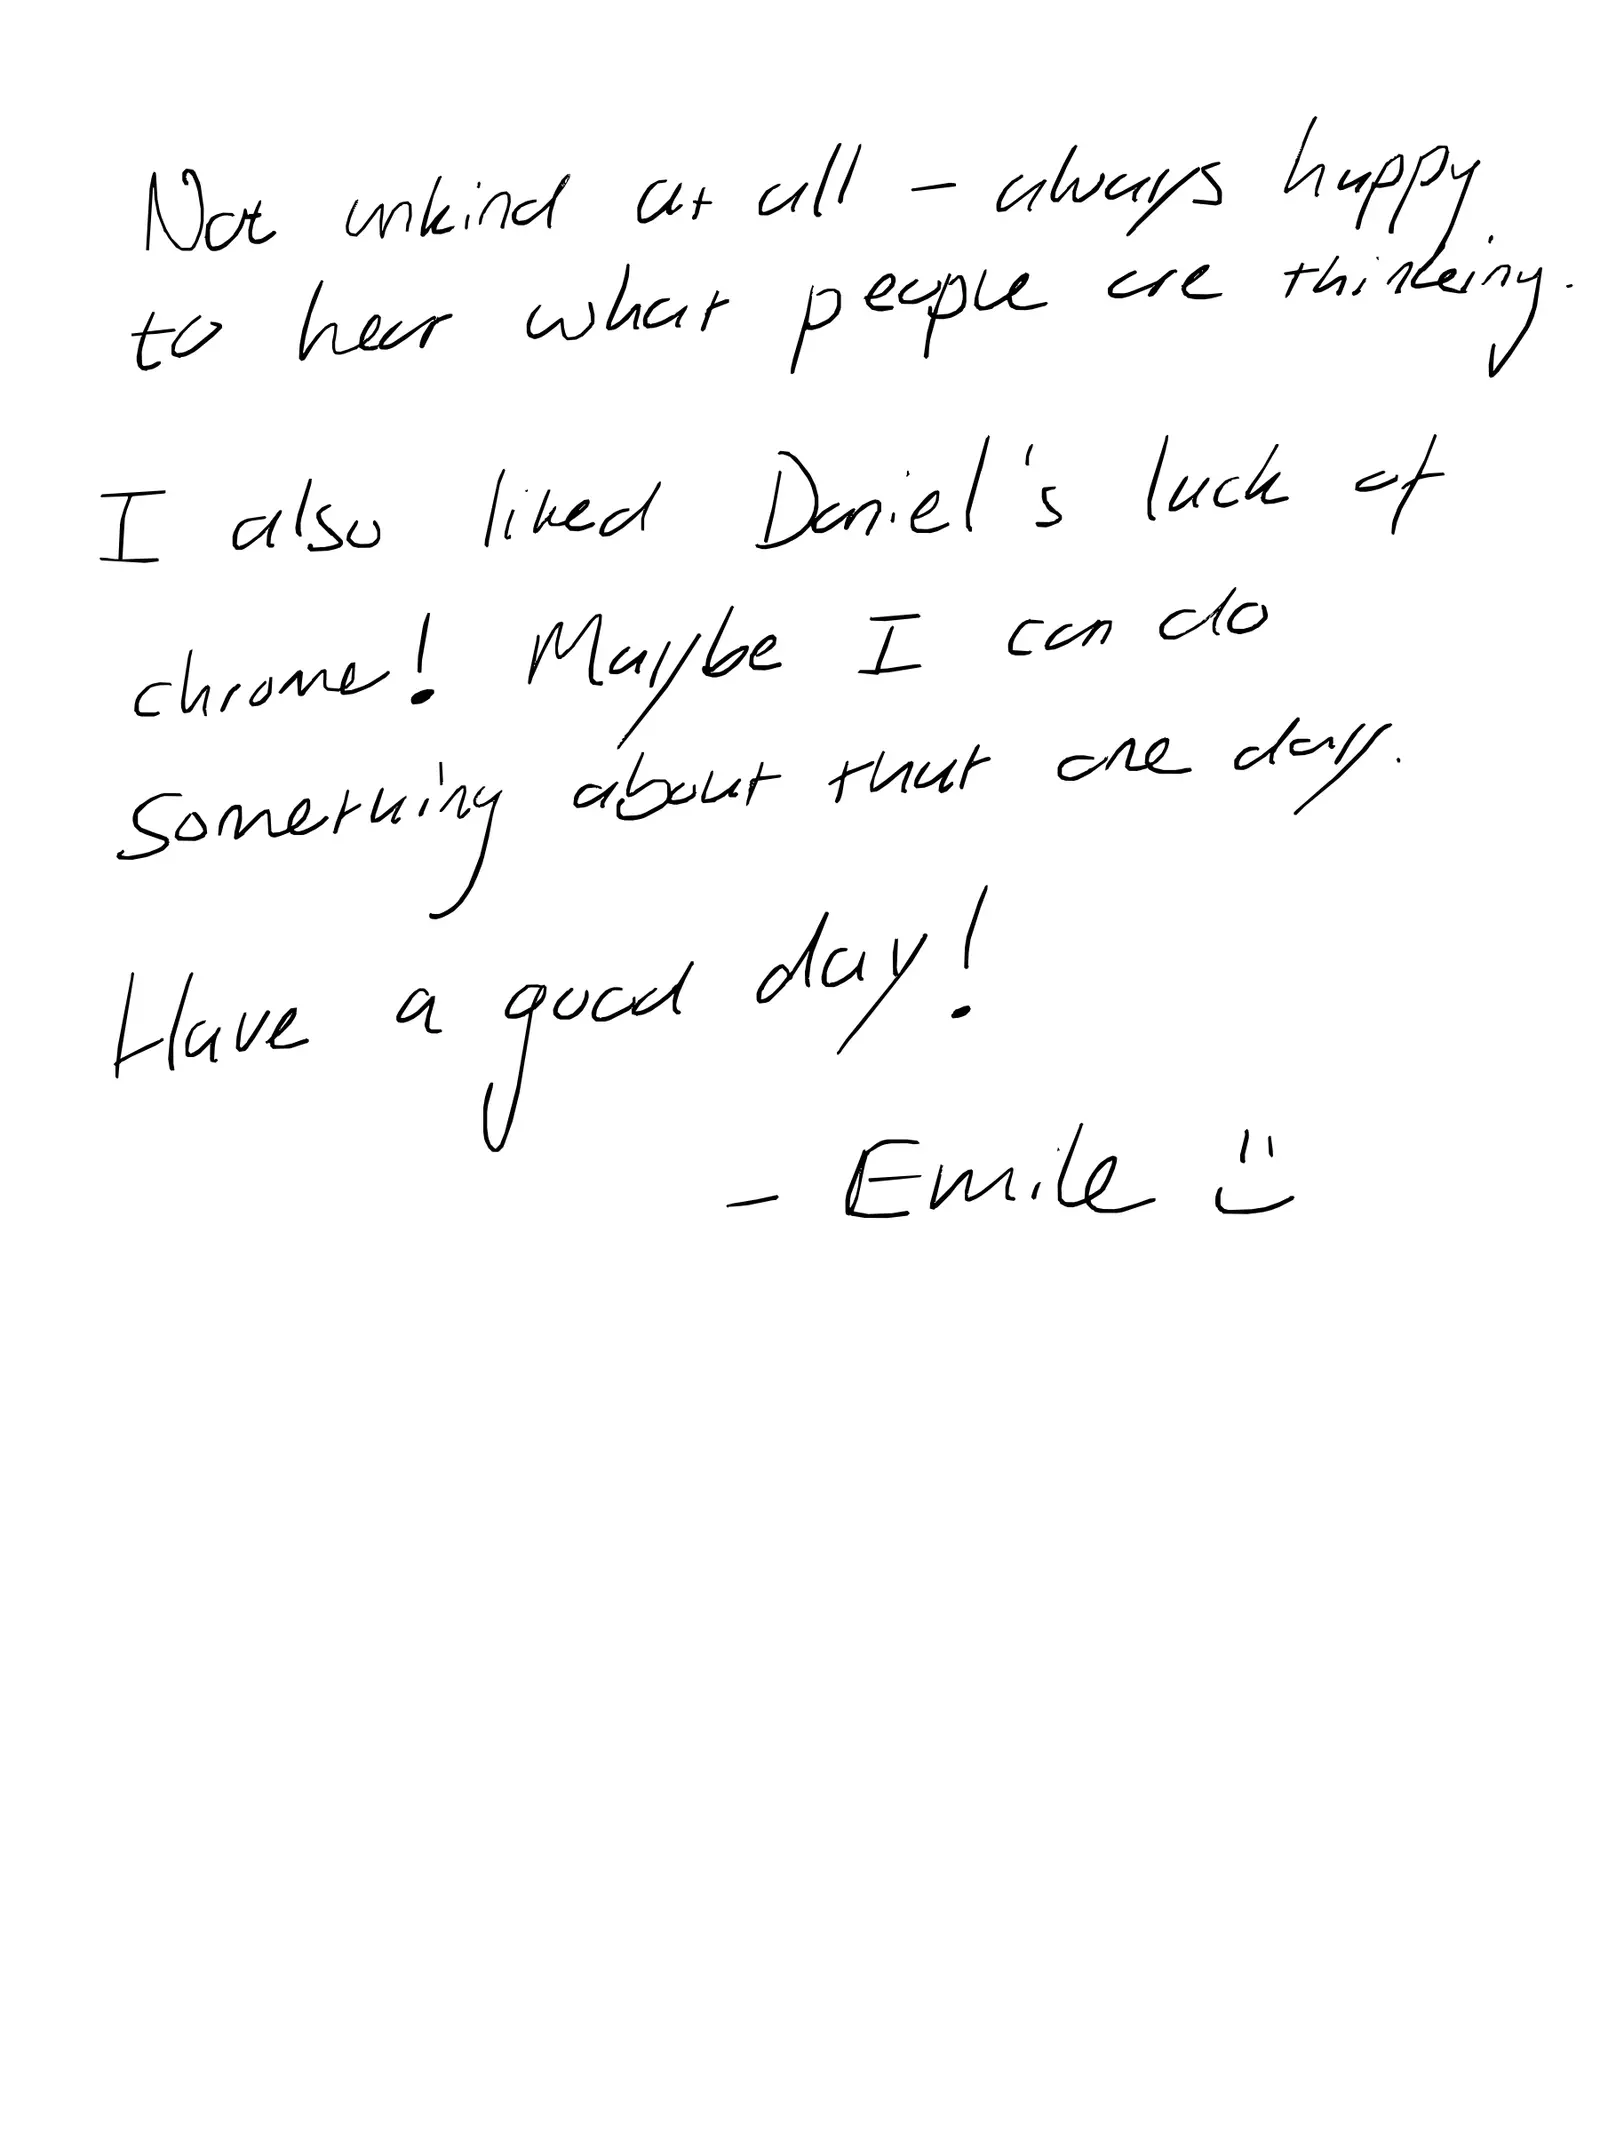 Not unkind at all – always happy
to hear what people are thinking.
I also liked Daniel's lack of
chrome! Maybe I can do
something about that one day.
Have a good day!
– Emile :)